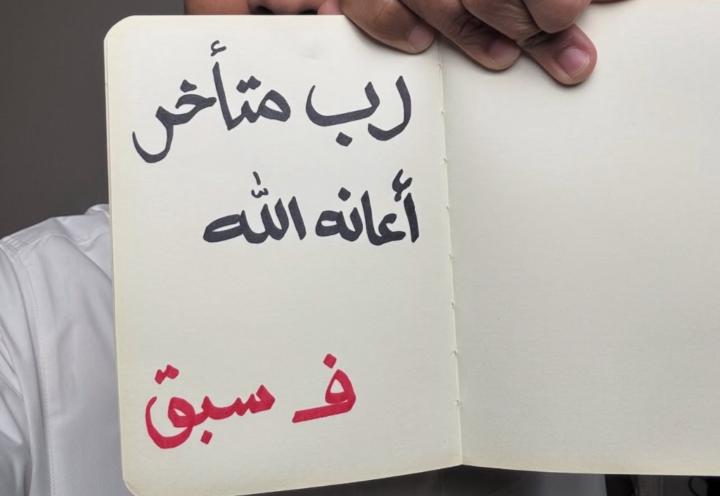 رب متأخر
أعانه الله
فـ سبق